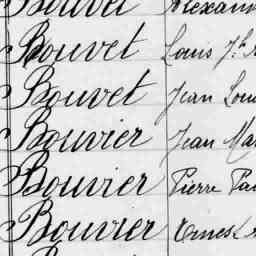 Bouvet
Bouvet Louis J.h
Bouvet Jean Lou
Bouvier Jean Ma
Bouvier Pierre
Bouvier Ernest